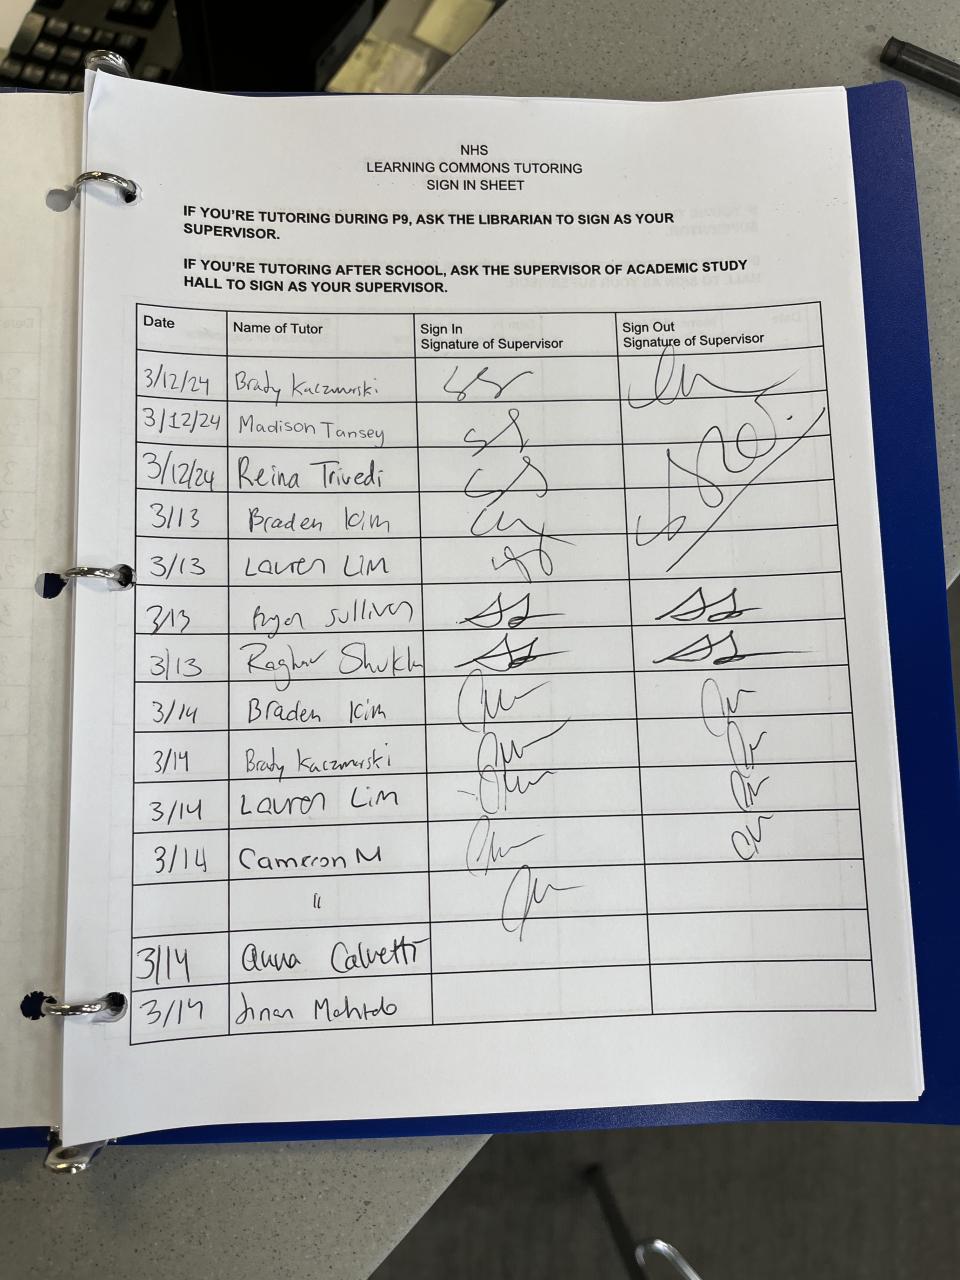 NHS
LEARNING COMMONS TUTORING
SIGN IN SHEET
IF YOU'RE TUTORING DURING P9, ASK THE LIBRARIAN TO SIGN AS YOUR
SUPERVISOR.
IF YOU'RE TUTORING AFTER SCHOOL, ASK THE SUPERVISOR OF ACADEMIC STUDY
HALL TO SIGN AS YOUR SUPERVISOR.
Date Name of Tutor Sign In Signature of Supervisor Sign Out Signature of Supervisor
3/12/24 Brady Kaczmarski
3/12/24 Madison Tansey
3/12/24 Reina Trivedi
3/13 Braden Kim
3/13 Lauren Lim
3/13 Ryan Sullivan
3/13 Raghav Shukla
3/14 Braden Kim
3/14 Brady Kaczmarski
3/14 Lauren Lim
3/14 Cameron M
"
3/14 Anna Calvetti
3/14